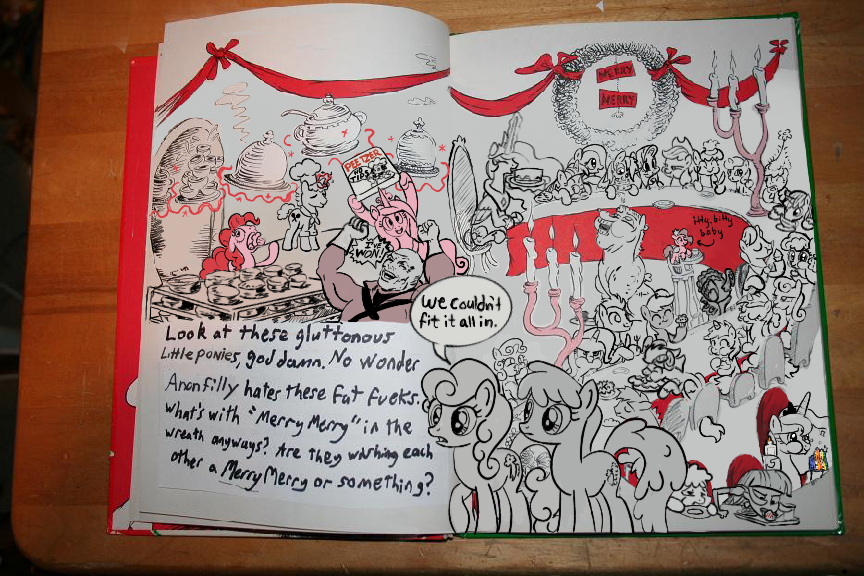 MERRY
MERRY
PEETZER
I'VE
WON!
itty-bitty
baby
We couldn't
fit it all in.
Look at these gluttonous
Little ponies, god damn. No wonder
Anonfilly hates these fat fucks.
What's with "Merry Merry" in the
wreath anyways? Are they wishing each
other a Merry Merry or something?